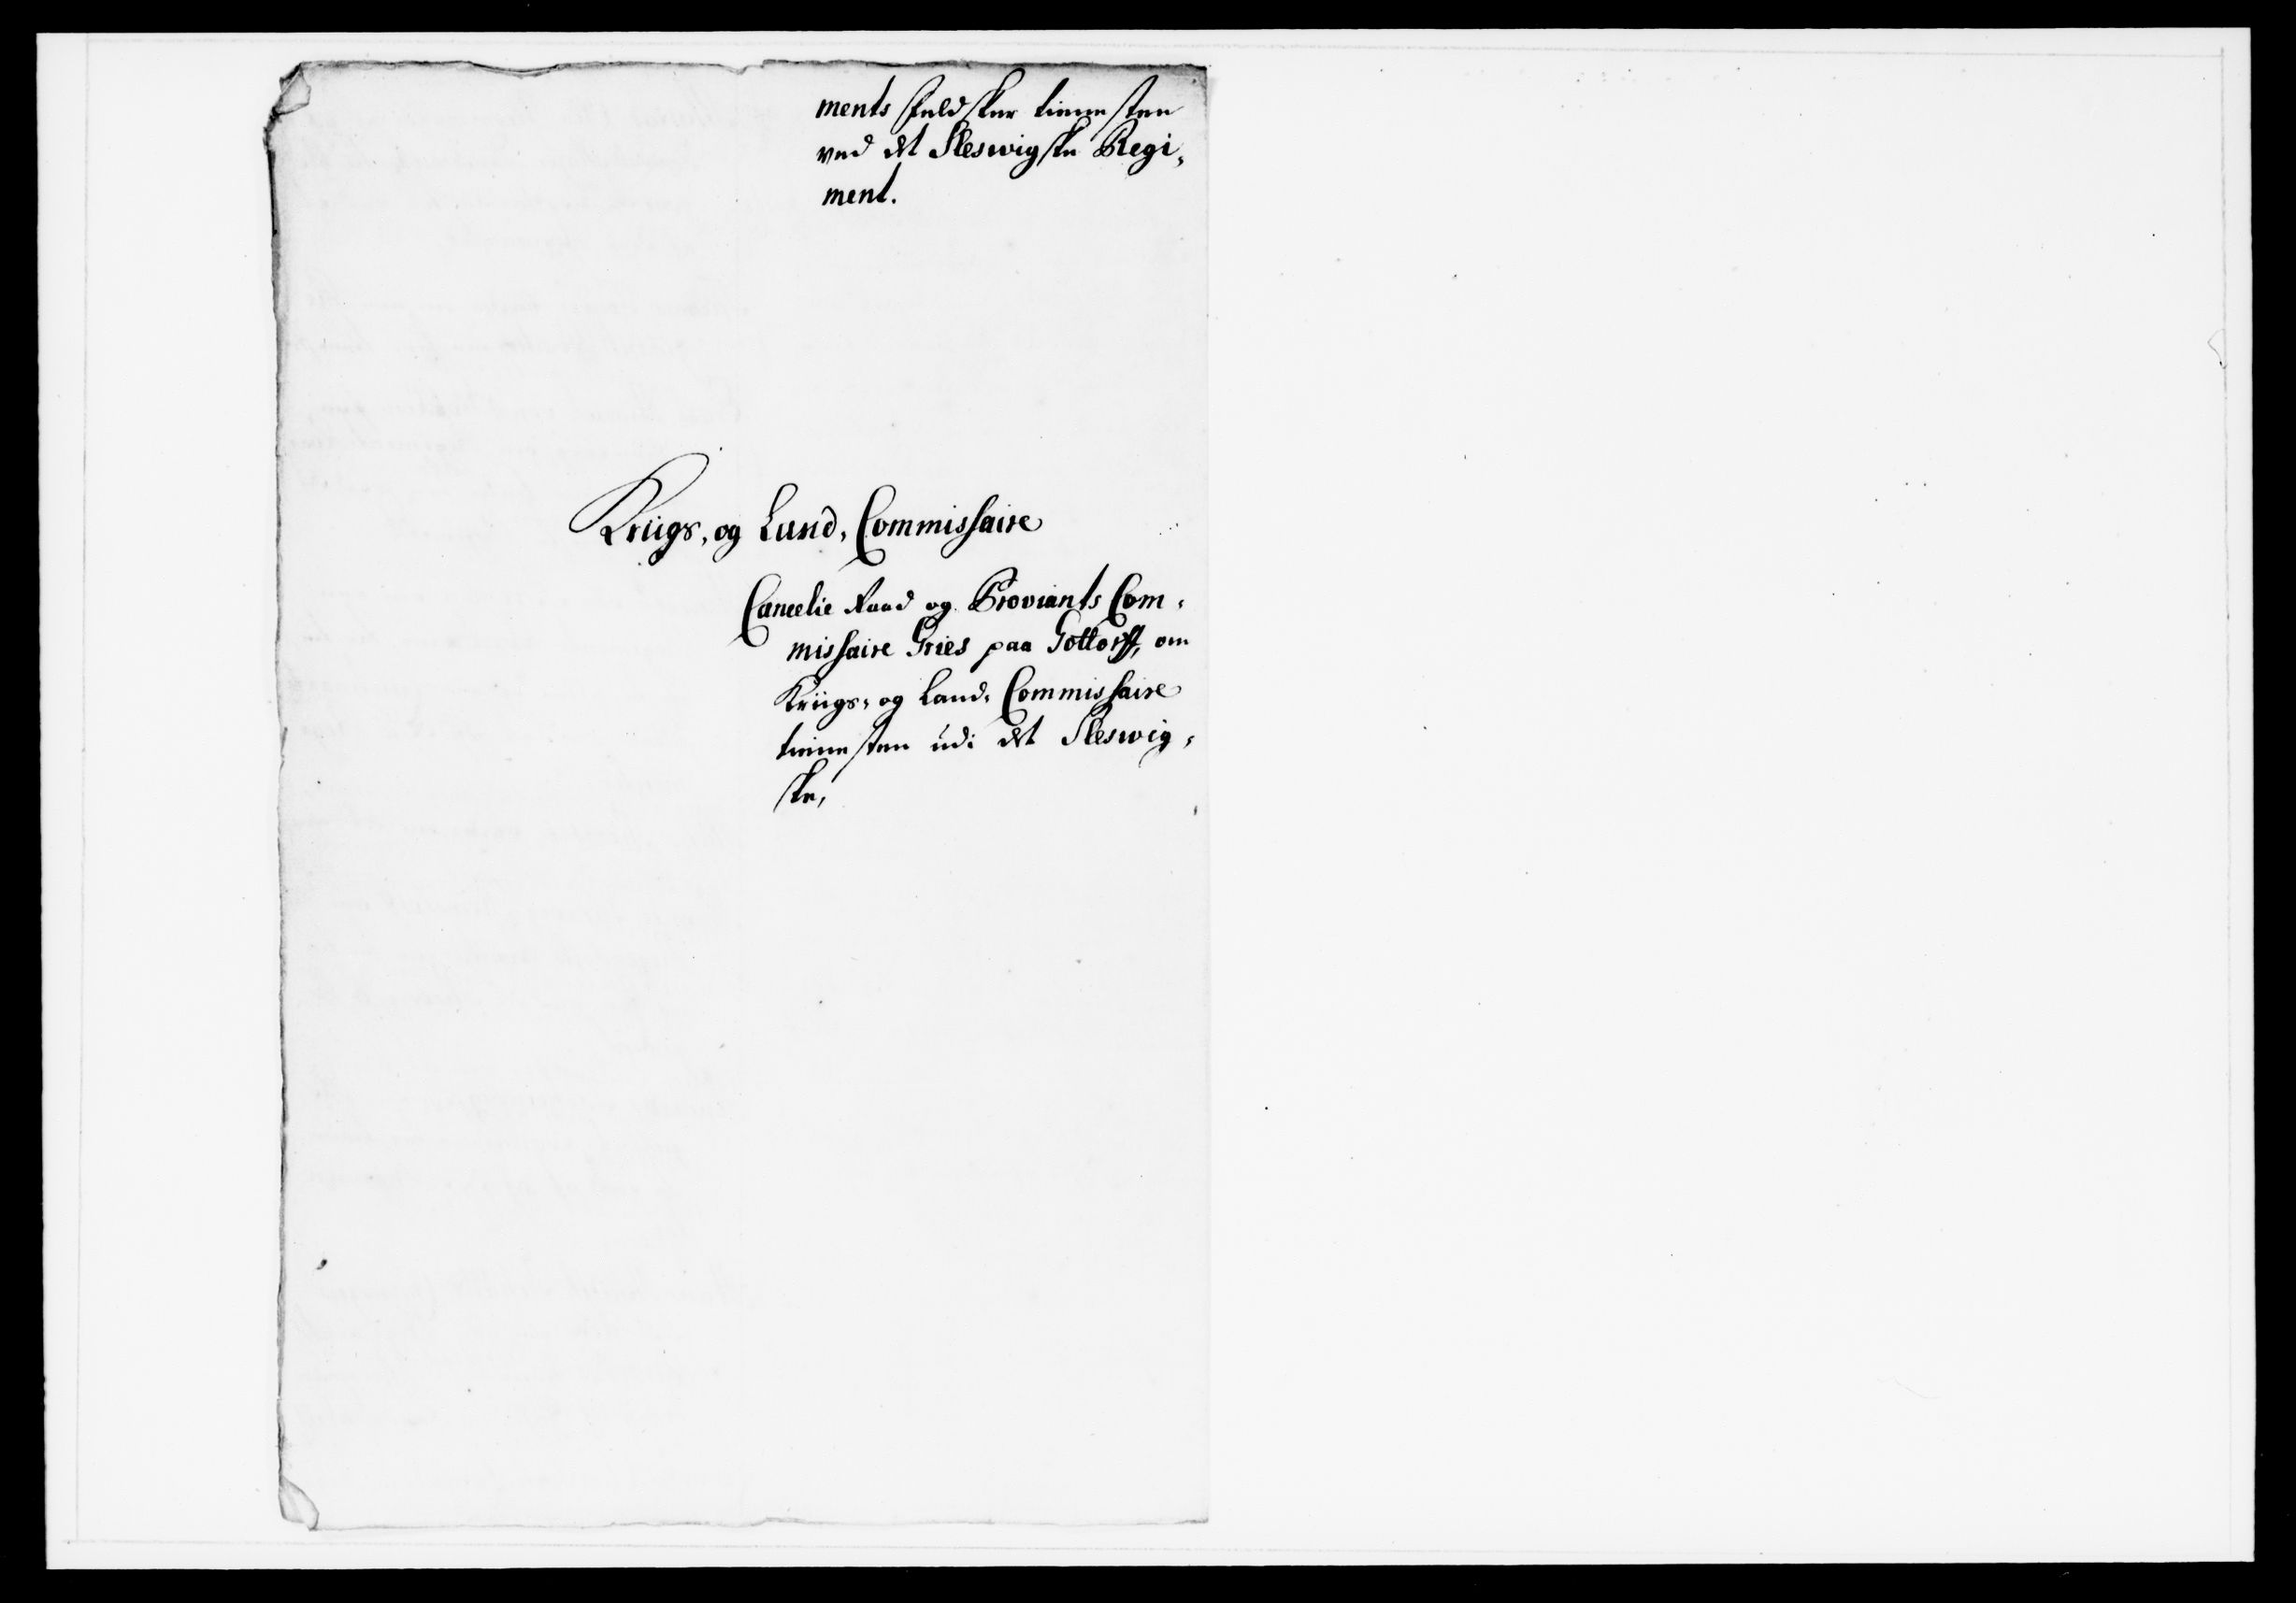 ments feldsker tienesten
ved det Sleswigske Regi,
ment.
Kriigs, og Land, Commissaire
Cancelie Raad og Proviants Com,
missaire Gries paa Gottorff, om
Kriigs, og Land, Commissaire
tienesten udi det Sleswig,
ske,